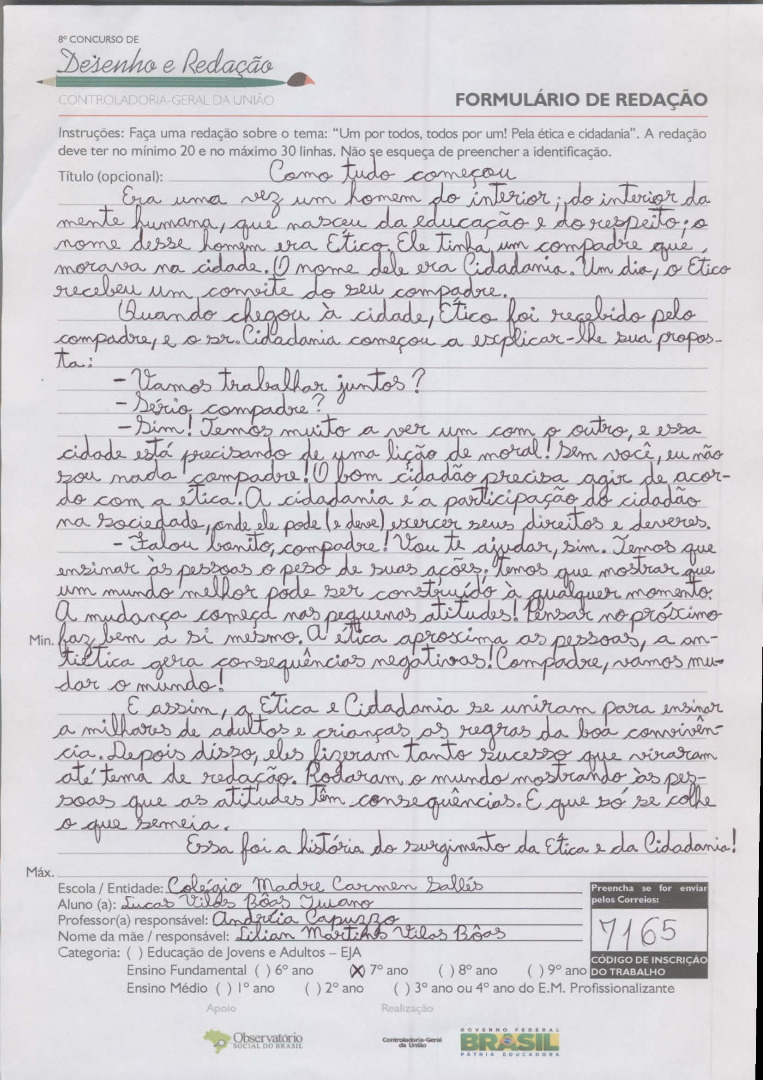 8º CONCURSO DE
Desenho e Redação
CONTROLADORIA-GERAL DA UNIÃO
FORMULÁRIO DE REDAÇÃO
Instruções: Faça uma redação sobre o tema: "Um por todos, todos por um! Pela ética e cidadania". A redação
deve ter no mínimo 20 e no máximo 30 linhas. Não se esqueça de preencher a identificação.
Título (opcional): Como tudo começou
Era uma vez um homem do interior; do interior da
mente humana, que nasceu da educação e do respeito; o
nome desse homem era Ético. Ele tinha um compadre que
morava na cidade. O nome dele era Cidadania. Um dia, o Ético
recebeu um convite do seu compadre.
Quando chegou à cidade, Ético foi recebido pelo
compadre, e o sr. Cidadania começou a explicar-lhe sua propos-
ta:
- Vamos trabalhar juntos?
- Sério compadre?
- Sim! Temos muito a ver um com o outro, e essa
cidade está precisando de uma lição de moral! Sem você, eu não
sou nada compadre! O bom cidadão precisa agir de acor-
do com a ética! A cidadania é a participação do cidadão
na sociedade, onde ele pode (e deve) exercer seus direitos e deveres.
- Falou bonito, compadre! Vou te ajudar, sim. Temos que
ensinar às pessoas o peso de suas ações. Temos que mostrar que
um mundo melhor pode ser construído à qualquer momento.
A mudança começa nas pequenas atitudes! Pensar no próximo
Min. faz bem a si mesmo. A ética aproxima as pessoas, a an-
tiética gera consequências negativas! Compadre, vamos mu-
dar o mundo!
E assim, a Ética e Cidadania se uniram para ensinar
a milhares de adultos e crianças as regras da boa convivên-
cia. Depois disso, eles fizeram tanto sucesso que viraram
até tema de redação. Rodaram o mundo mostrando às pes-
soas que as atitudes têm consequências. E que só se colhe
o que semeia.
Essa foi a história do surgimento da Ética e da Cidadania!
Máx.
Escola / Entidade: Colégio Madre Carmen Sallés
Aluno (a): Lucas Vilas Bôas Tuiano
Professor(a) responsável: Andréia Capuzzo
Nome da mãe / responsável: Lilian Martins Vilas Bôas
Categoria: ( ) Educação de Jovens e Adultos – EJA
Ensino Fundamental ( ) 6º ano (X) 7º ano ( ) 8º ano ( ) 9º ano
Ensino Médio ( ) 1º ano ( ) 2º ano ( ) 3º ano ou 4º ano do E.M. Profissionalizante
Preencha se for enviar
pelos Correios:
7165
CÓDIGO DE INSCRIÇÃO
DO TRABALHO
Apoio
Realização
Observatório
SOCIAL DO BRASIL
Controladoria-Geral
da União
GOVERNO FEDERAL
BRASIL
PÁTRIA EDUCADORA